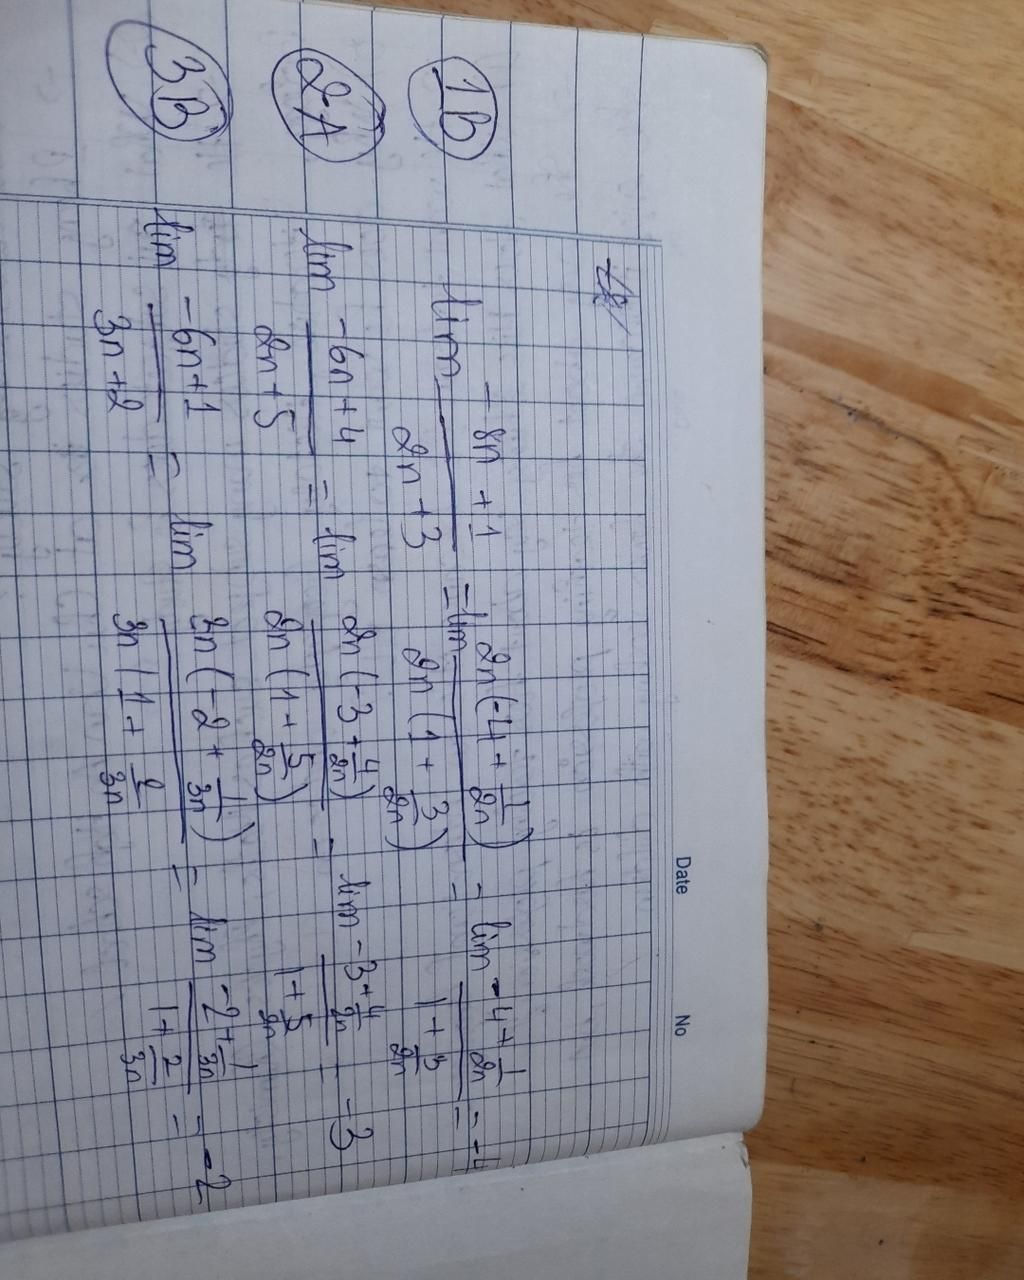 Date No
1B lim (-8n + 1)/(2n + 3) = lim (2n(-4 + 1/2n))/(2n(1 + 3/2n)) = lim (-4 + 1/2n)/(1 + 3/2n) = -4
2A lim (-6n + 4)/(2n + 5) = lim (2n(-3 + 4/2n))/(2n(1 + 5/2n)) = lim (-3 + 4/2n)/(1 + 5/2n) = -3
3B lim (-6n + 1)/(3n + 2) = lim (3n(-2 + 1/3n))/(3n(1 + 2/3n)) = lim (-2 + 1/3n)/(1 + 2/3n) = -2